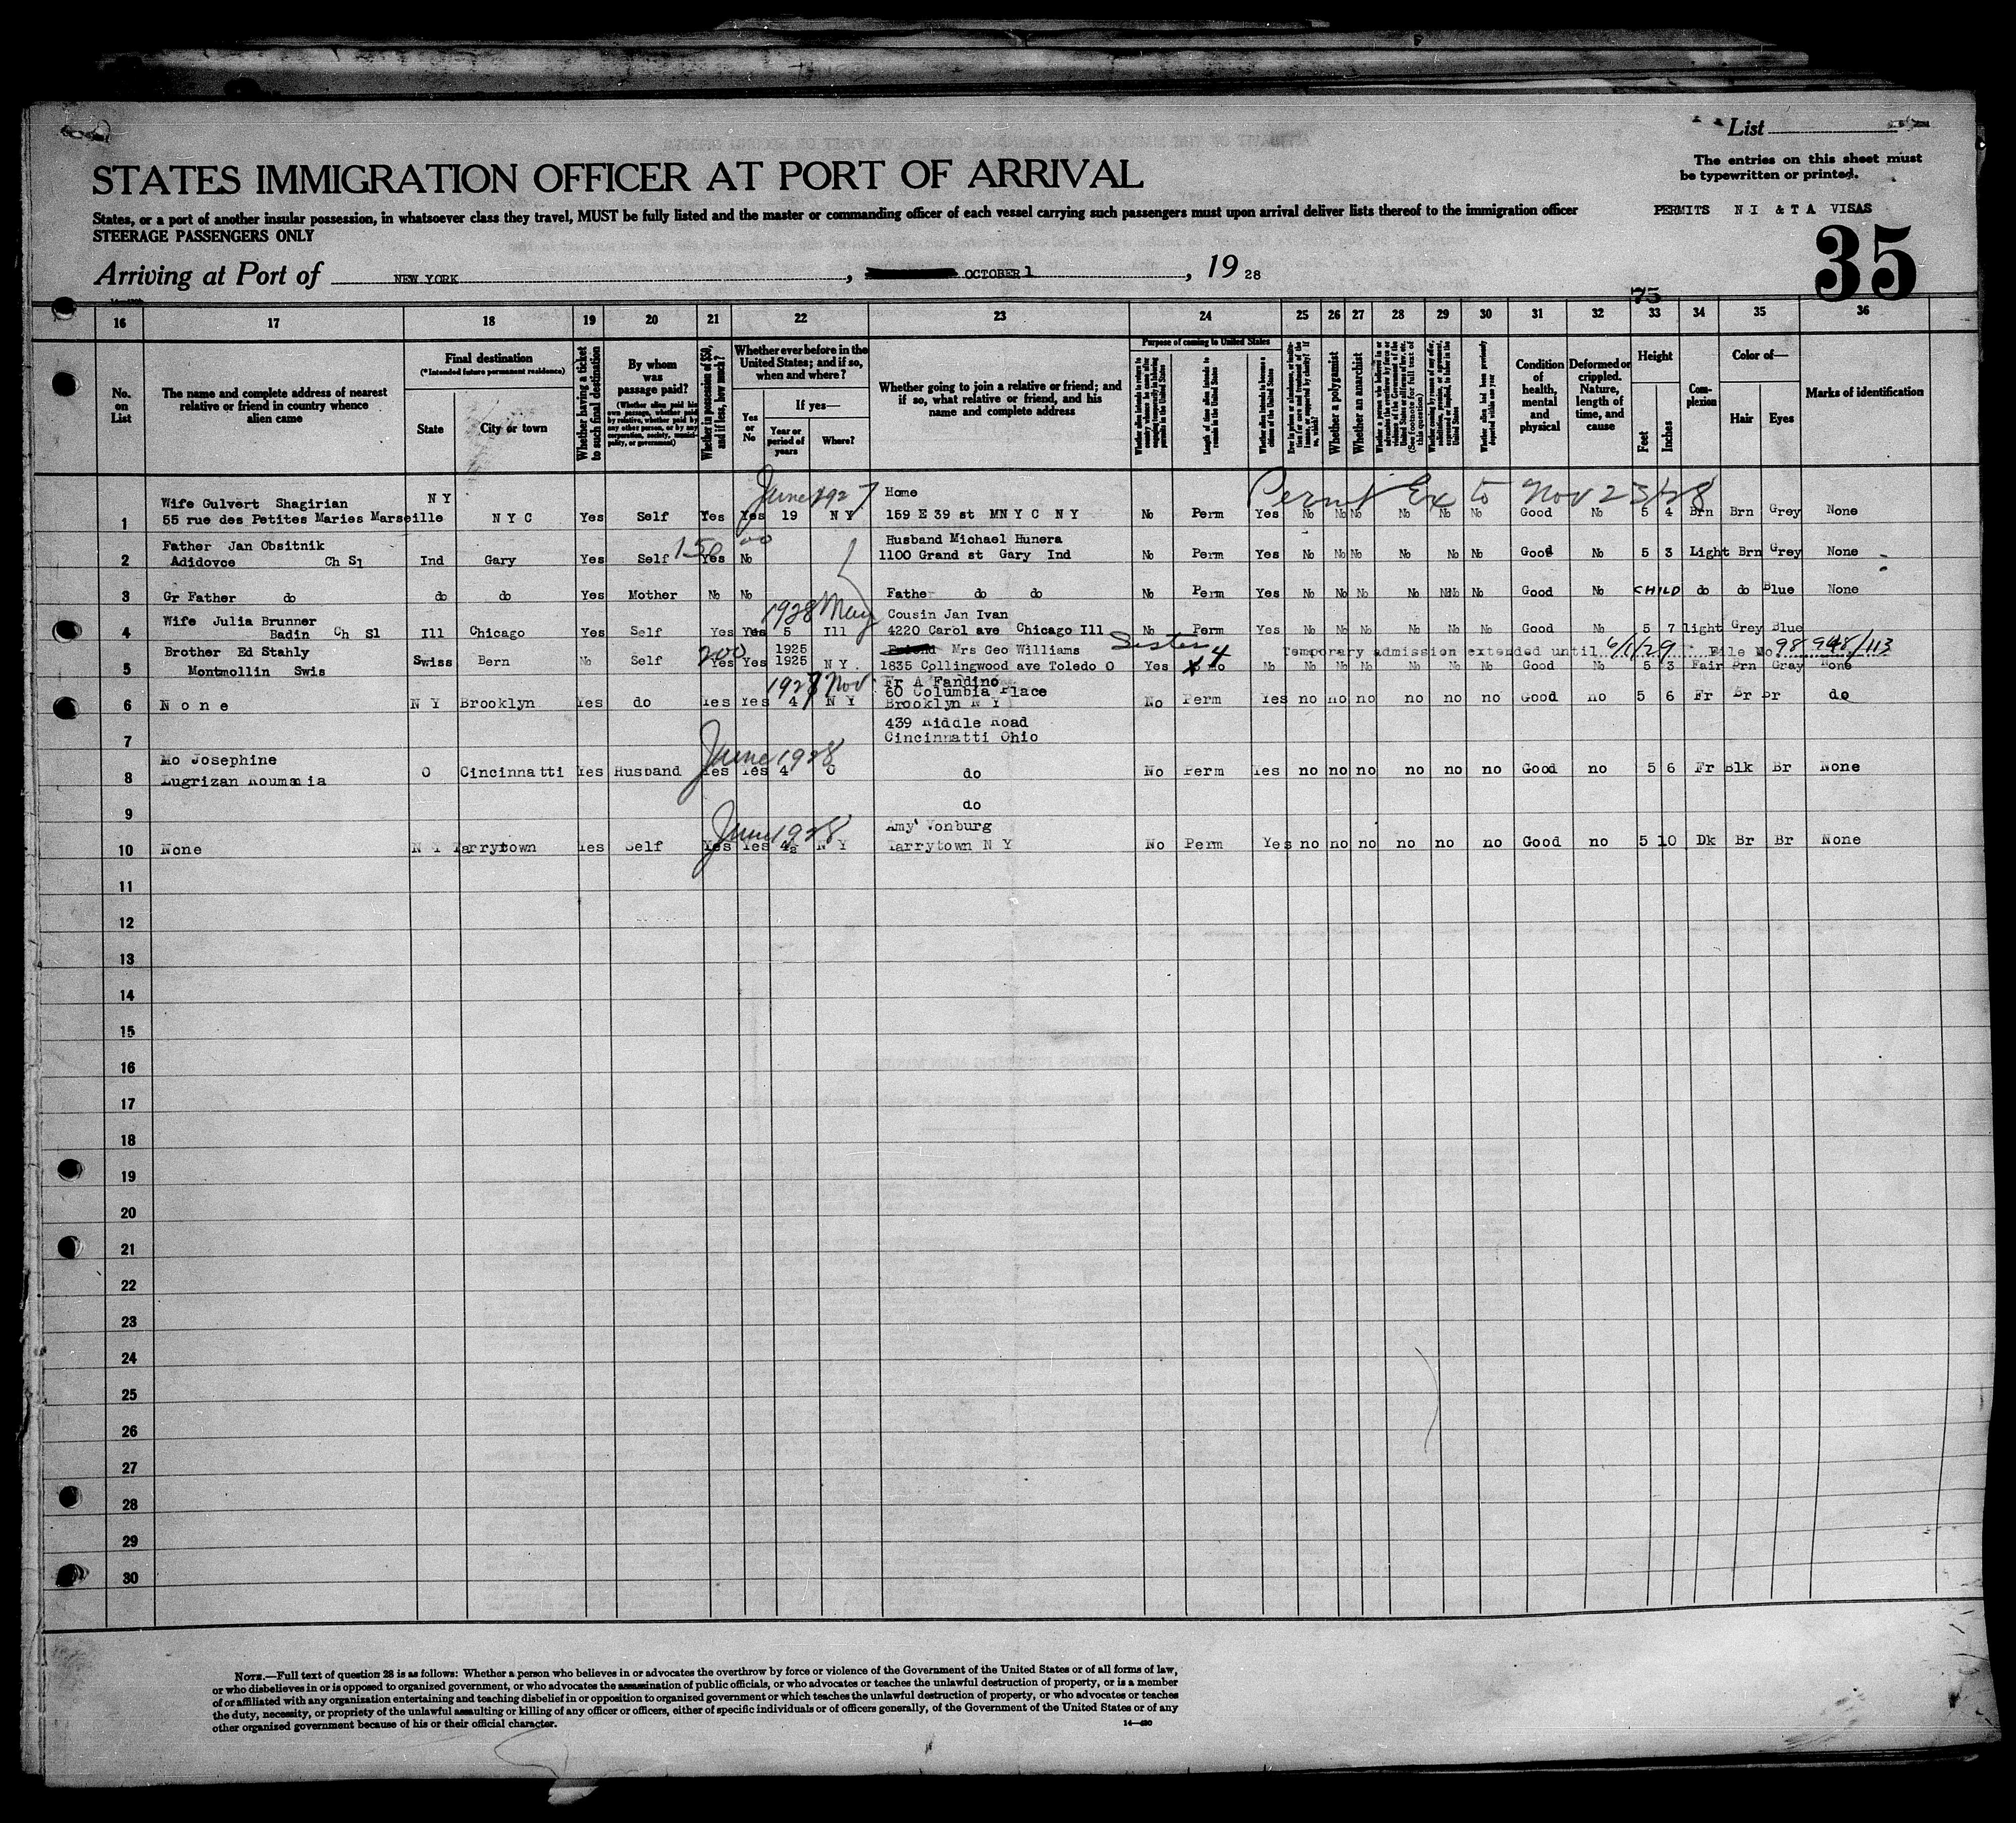 List
The entries on this sheet must
be typewritten or printed.
STATES IMMIGRATION OFFICER AT PORT OF ARRIVAL
States, or a port of another insular possession, in whatsoever class they travel, MUST be fully listed and the master or commanding officer of each vessel carrying such passengers must upon arrival deliver lists thereof to the immigration officer
PERMITS N I & T A VISAS
STEERAGE PASSENGERS ONLY
35
Arriving at Port of NEW YORK, OCTOBER 1, 19 28
75
16 17 18 19 20 21 22 23 24 25 26 27 28 29 30 31 32 33 34 35 36
No. on List
The name and complete address of nearest relative or friend in country whence alien came
Final destination
(*Intended future permanent residence)
State
City or town
Whether having a ticket to such final destination
By whom was passage paid?
(Whether alien paid his own passage, whether paid by relative, whether paid by any other person, or by any corporation, society, municipality, or government)
Whether in possession of $50, and if less, how much?
Whether ever before in the United States; and if so, when and where?
Yes or No
If yes—
Year or period of years
Where?
Whether going to join a relative or friend; and if so, what relative or friend, and his name and complete address
Purpose of coming to United States
Length of time alien intends to remain in the United States
Whether alien intends to become a citizen of the United States
Whether a polygamist
Whether an anarchist
Condition of health, mental and physical
Deformed or crippled. Nature, length of time, and cause
Height
Feet
Inches
Complexion
Color of—
Hair
Eyes
Marks of identification
June 1927
Permit Ex to Nov 23/28
Wife Gulvert Shagirian N Y Home
1 55 rue des Petites Maries Marseille N Y C Yes Self Yes Yes 19 N Y 159 E 39 st MN Y C N Y No Perm Yes No No No No No No Good No 5 4 Brn Brn Grey None
150 00
Father Jan Obsitnik Husband Michael Hunera
2 Adidovce Ch Sl Ind Gary Yes Self Yes No 1100 Grand st Gary Ind No Perm Yes No No No No No No Good No 5 3 Light Brn Grey None
3 Gr Father do do do Yes Mother No No Father do do No Perm Yes No No No No No No Good No CHILD do do Blue None
1928 May
Wife Julia Brunner Cousin Jan Ivan
4 Badin Ch Sl Ill Chicago Yes Self Yes Yes 5 Ill 4220 Carol ave Chicago Ill No Perm Yes No No No No No No Good No 5 7 light Grey Blue
200 Sister 4
Brother Ed Stahly 1925 Mrs Geo Williams Temporary admission extended until 6/1/29 File No 98 948/113
5 Montmollin Swis Swiss Bern No Self Yes Yes 1925 N Y. 1835 Collingwood ave Toledo O Yes mo No No No No No No No Good No 5 3 Fair Brn Gray None
1927 Nov
Fr A Fandino
60 Columbia Place
6 None N Y Brooklyn Yes do Yes Yes 4 N Y Brooklyn N Y No Perm Yes no no no no no no Good no 5 6 Fr Br Br do
439 Riddle Road
7 Cincinnatti Ohio
June 1928
Mo Josephine
8 Lugrizan Roumania O Cincinnatti Yes Husband Yes Yes 4 O do No Perm Yes no no no no no no Good no 5 6 Fr Blk Br None
9 do
June 1928
Amy Vonburg
10 None N Y Tarrytown Yes Self Yes Yes N Y Tarrytown N Y No Perm Yes no no no no no no Good no 5 10 Dk Br Br None
11
12
13
14
15
16
17
18
19
20
21
22
23
24
25
26
27
28
29
30
NOTE.—Full text of question 28 is as follows: Whether a person who believes in or advocates the overthrow by force or violence of the Government of the United States or of all forms of law,
or who disbelieves in or is opposed to organized government, or who advocates the assassination of public officials, or who advocates or teaches the unlawful destruction of property, or is a member
of or affiliated with any organization entertaining and teaching disbelief in or opposition to organized government or which teaches the unlawful destruction of property, or who advocates or teaches
the duty, necessity, or propriety of the unlawful assaulting or killing of any officer or officers, either of specific individuals or of officers generally, of the Government of the United States or of any
other organized government because of his or their official character.
14—430